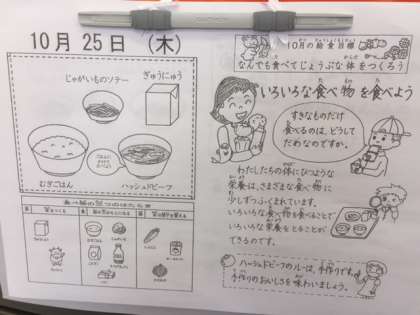 10月 25日 (木)
じゃがいものソテー
ぎゅうにゅう
むぎごはん
ハッシュドビーフ
10月の給食目標
なんでも食べてじょうぶな体をつくろう
いろいろな食べ物を食べよう
すきなものだけ
食べるのは、どうして
だめなのですか。
わたしたちの体にひつような
栄養は、さまざまな食べ物に
少しずつふくまれています。
いろいろな食べ物を食べることで
いろいろな栄養をとることが
できるのです。
ハッシュドビーフのルーは、手作りです。
手作りのおいしさを味わいましょう。